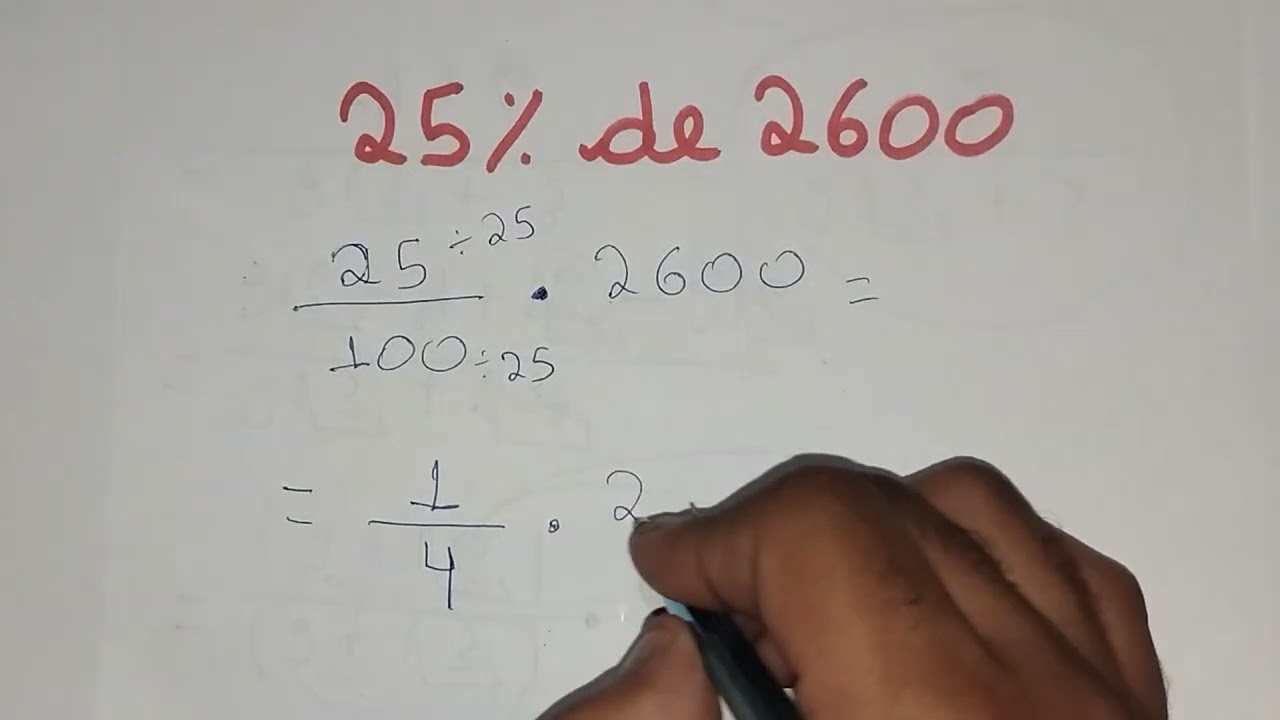 25% de 2600
25 ÷25
100 ÷25 · 2600 =
= 1
4 · 2